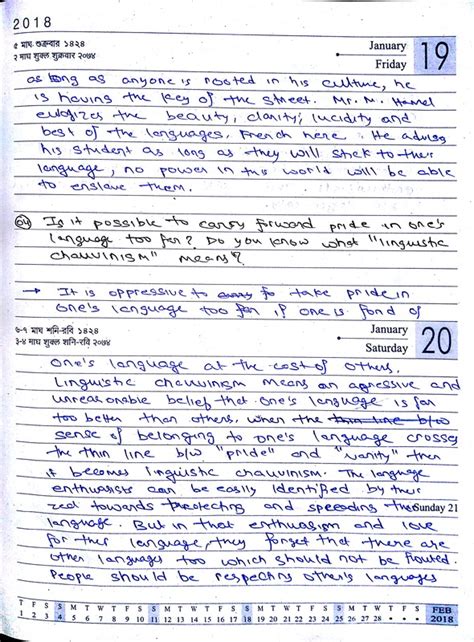 2018
৫ মাঘ শুক্রবার ১৪২৪
২ মাঘ শুক্ল শুক্রবার ২০৭৪
January
Friday
19
as long as anyone is rooted in his culture, he
is having the key of the street. Mr. M. Hamel
eulogizes the beauty, clarity, lucidity and
best of the languages, French here. He advises
his student as long as they will stick to their
language, no power in this world will be able
to enslave them.
04 Is it possible to carry forward pride in one's
language too far? Do you know what "linguistic
chauvinism" means?
→ It is oppressive to carry to take pride in
one's language too far if one is fond of
৬-৭ মাঘ শনি-রবি ১৪২৪
৩-৪ মাঘ শুক্ল শনি-রবি ২০৭৪
January
Saturday
20
one's language at the cost of others.
Linguistic chauvinism means an aggressive and
unreasonable belief that one's language is far
too better than others. when the thin line b/w
sense of belonging to one's language crosses
the thin line b/w "pride" and "vanity" then
it becomes linguistic chauvinism. The language
enthusiasts can be easily identified by their
zeal towards protecting and spreading their
Sunday 21
language. But in that enthusiasm and love
for their language, they forget that there are
other languages too which should not be flouted.
People should be respecting other's languages
T F S S M T W T F S S M T W T F S S M T W T F S S M T W
1 2 3 4 5 6 7 8 9 10 11 12 13 14 15 16 17 18 19 20 21 22 23 24 25 26 27 28
FEB
2018